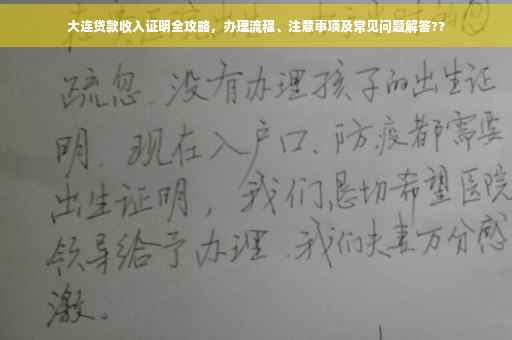 大连贷款收入证明全攻略，办理流程、注意事项及常见问题解答??
疏忽、没有办理孩子的出生证
明、现在入户口、防疫都需要
出生证明，我们恳切希望医院
领导给予办理、我们夫妻万分感
激。